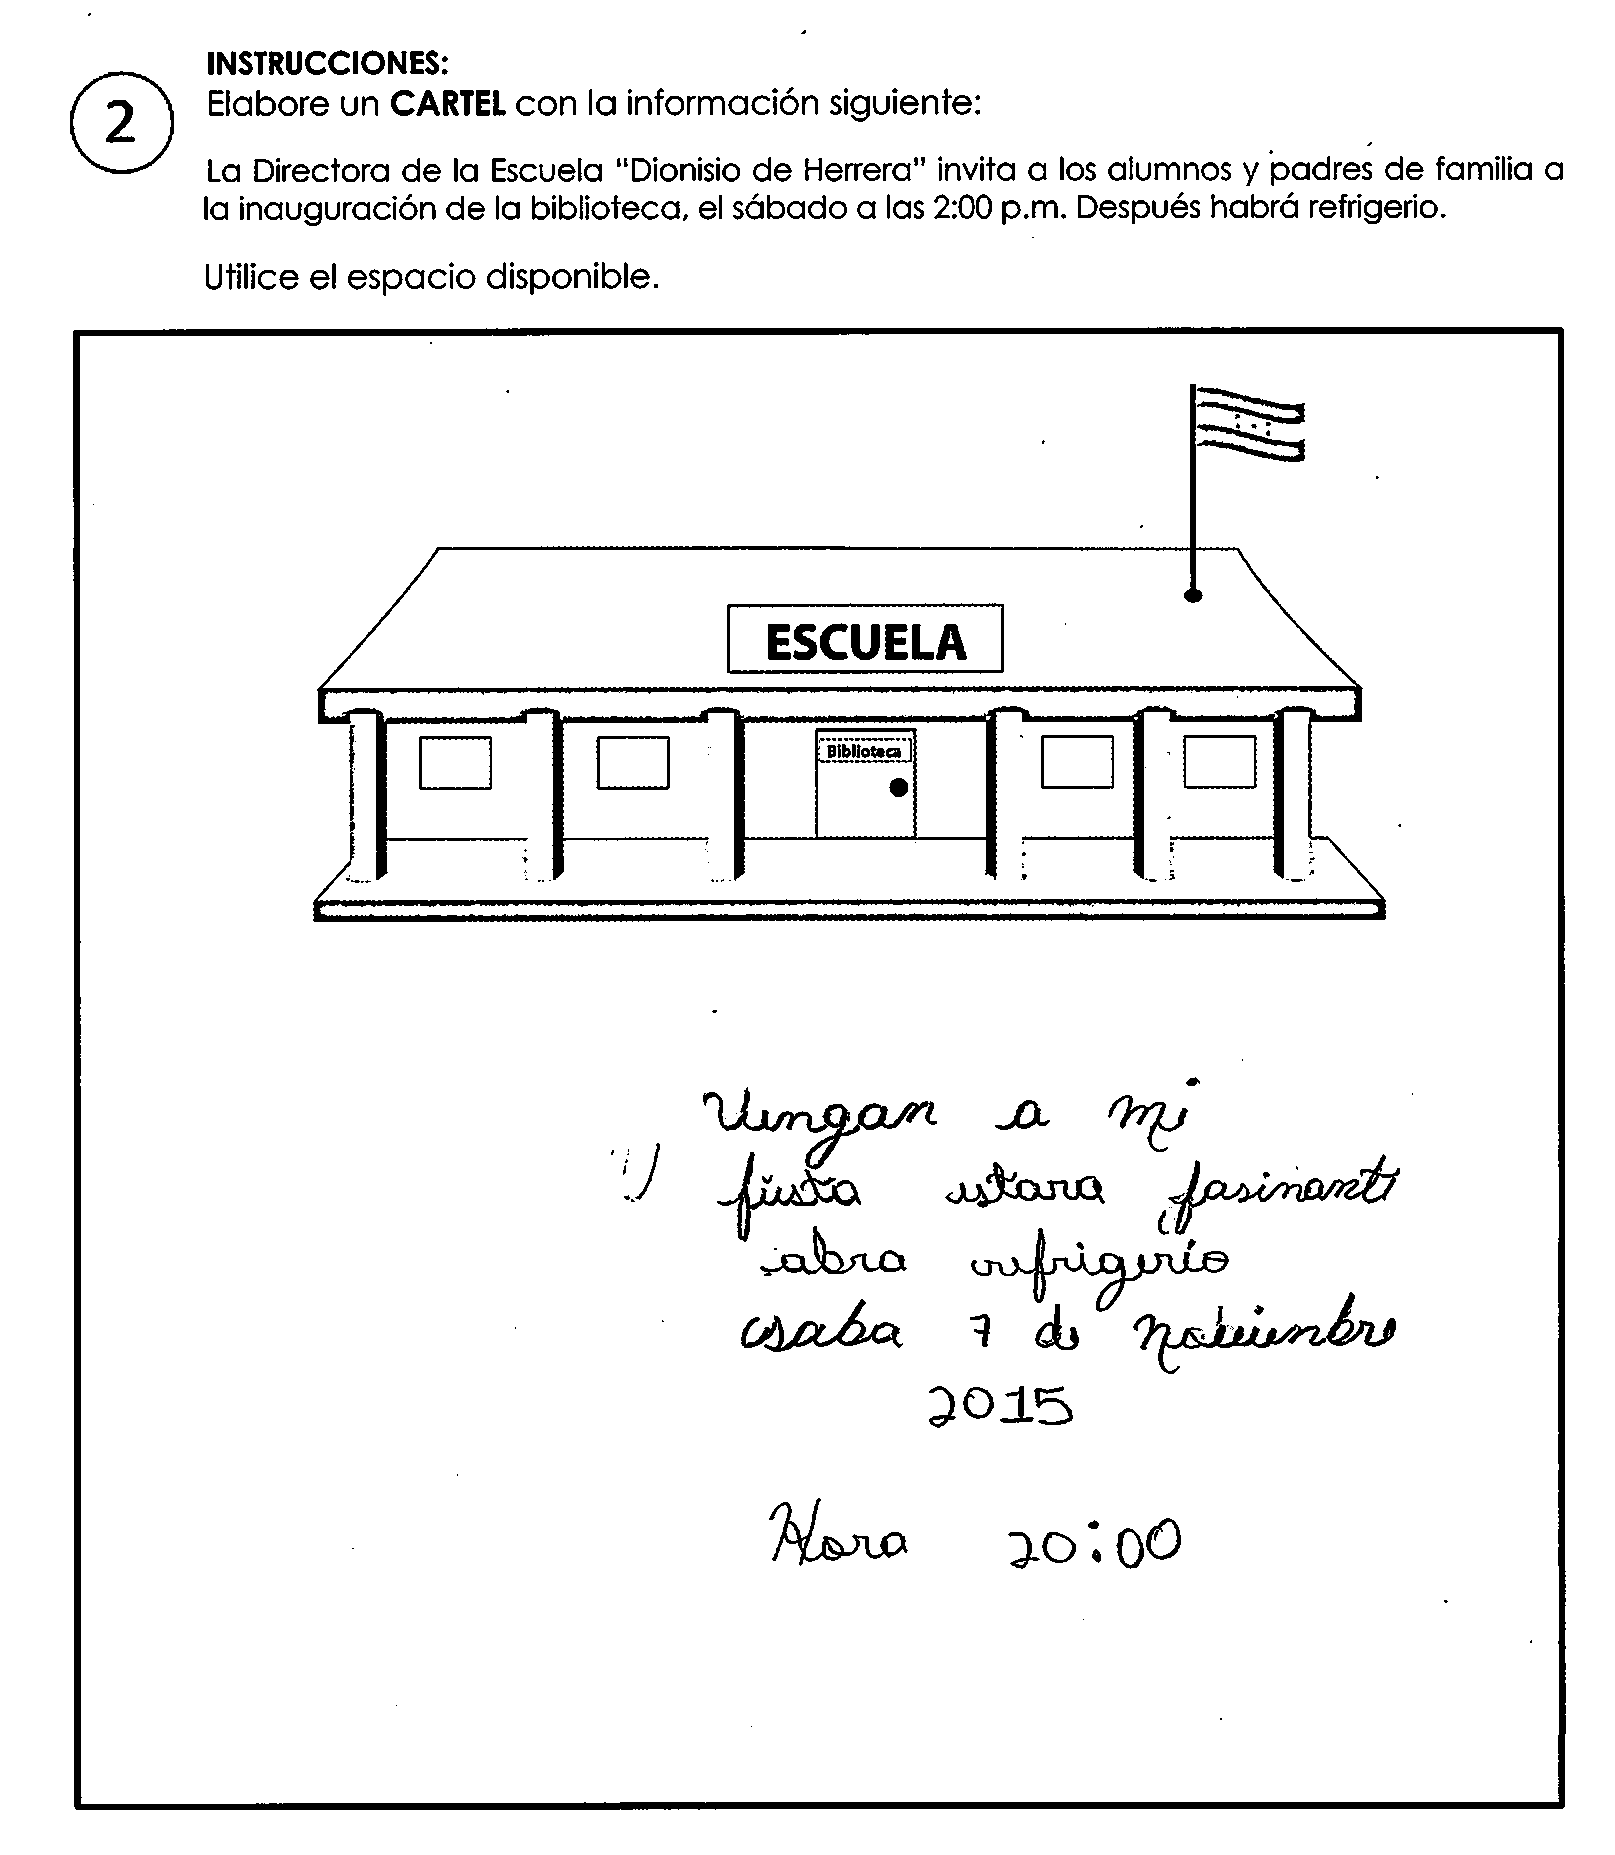 INSTRUCCIONES:
2
Elabore un CARTEL con la información siguiente:
La Directora de la Escuela "Dionisio de Herrera" invita a los alumnos y padres de familia a
la inauguración de la biblioteca, el sábado a las 2:00 p.m. Después habrá refrigerio.
Utilice el espacio disponible.
ESCUELA
Biblioteca
Vengan a mi
fiesta estara fasinante
abra refrigerio
7 de
2015
Hora 20:00